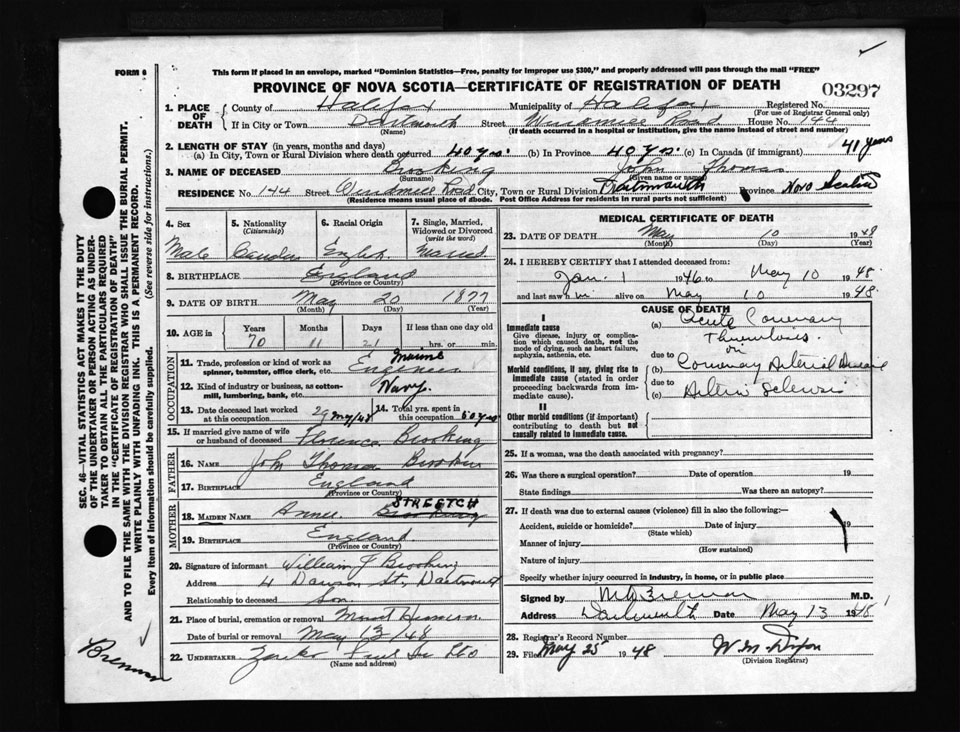 FORM 6
This form if placed in an envelope, marked "Dominion Statistics—Free, penalty for improper use $300," and properly addressed will pass through the mail "FREE"
PROVINCE OF NOVA SCOTIA—CERTIFICATE OF REGISTRATION OF DEATH
03297
1. PLACE OF DEATH
County of Halifax Municipality of Halifax Registered No.
(For use of Registrar General only)
If in City or Town Dartmouth Street Windmill Road House No. 144
(Name) (If death occurred in a hospital or institution, give the name instead of street and number)
2. LENGTH OF STAY (in years, months and days)
(a) In City, Town or Rural Division where death occurred 40 yrs. (b) In Province 40 Yrs. (c) In Canada (if immigrant) 41 years
3. NAME OF DECEASED Brooking John Thomas
(Surname) (Given name or names)
RESIDENCE No. 144 Street Windmill Road City, Town or Rural Division Dartmouth Province Nova Scotia
(Residence means usual place of abode. Post Office Address for residents in rural parts not sufficient)
4. Sex
Male
5. Nationality
(Citizenship)
6. Racial Origin
English
7. Single, Married, Widowed or Divorced
(write the word)
8. BIRTHPLACE England
(Province or Country)
9. DATE OF BIRTH May 20 1877
(Month) (Day) (Year)
10. AGE in Years Months Days If less than one day old
70 11 21 hrs. or min.
OCCUPATION
11. Trade, profession or kind of work as spinner, teamster, office clerk, etc. Marine Engineer
12. Kind of industry or business, as cotton-mill, lumbering, bank, etc. Navy.
13. Date deceased last worked at this occupation 14. Total yrs. spent in this occupation 50 yrs
15. If married give name of wife or husband of deceased Florence Brooking
FATHER
16. NAME John Thomas Brooking
17. BIRTHPLACE England
(Province or Country)
MOTHER
18. MAIDEN NAME STREETCH
Brooking
19. BIRTHPLACE England
(Province or Country)
20. Signature of informant William J Brooking
Address 4 Dawson St. Dartmouth
Relationship to deceased Son.
21. Place of burial, cremation or removal Mount Hermon.
Date of burial or removal May 13/48
22. UNDERTAKER
(Name and address)
MEDICAL CERTIFICATE OF DEATH
23. DATE OF DEATH May 10 1948
(Month) (Day) (Year)
24. I HEREBY CERTIFY that I attended deceased from:
Jan. 1 1946 to May 10 1948.
and last saw him alive on May 10 1948
CAUSE OF DEATH
I
Immediate cause
Give disease, injury or complication which caused death, not the mode of dying, such as heart failure, asphyxia, asthenia, etc.
(a) Acute Coronary Thrombosis
due to
Morbid conditions, if any, giving rise to immediate cause (stated in order proceeding backwards from immediate cause).
(b) Coronary Arterial Disease
due to
(c) Arterio Sclerosis
II
Other morbid conditions (if important) contributing to death but not causally related to immediate cause.
25. If a woman, was the death associated with pregnancy?
26. Was there a surgical operation? Date of operation 19
State findings Was there an autopsy?
27. If death was due to external causes (violence) fill in also the following:—
Accident, suicide or homicide? Date of injury 19
(State which)
Manner of injury
(How sustained)
Nature of injury
Specify whether injury occurred in industry, in home, or in public place
Signed by M.D.
Address Dartmouth Date May 13 1948
28. Registrar's Record Number
29. Filed May 25 1948 W. M. Dixon
(Division Registrar)
SEC. 46—VITAL STATISTICS ACT MAKES IT THE DUTY OF THE UNDERTAKER OR PERSON ACTING AS UNDERTAKER TO OBTAIN ALL THE PARTICULARS REQUIRED IN THE "CERTIFICATE OF REGISTRATION OF DEATH" AND TO FILE THE SAME WITH THE DIVISION REGISTRAR WHO SHALL ISSUE THE BURIAL PERMIT.
WRITE PLAINLY WITH UNFADING INK. THIS IS A PERMANENT RECORD.
Every item of information should be carefully supplied. (See reverse side for instructions.)
Brennan